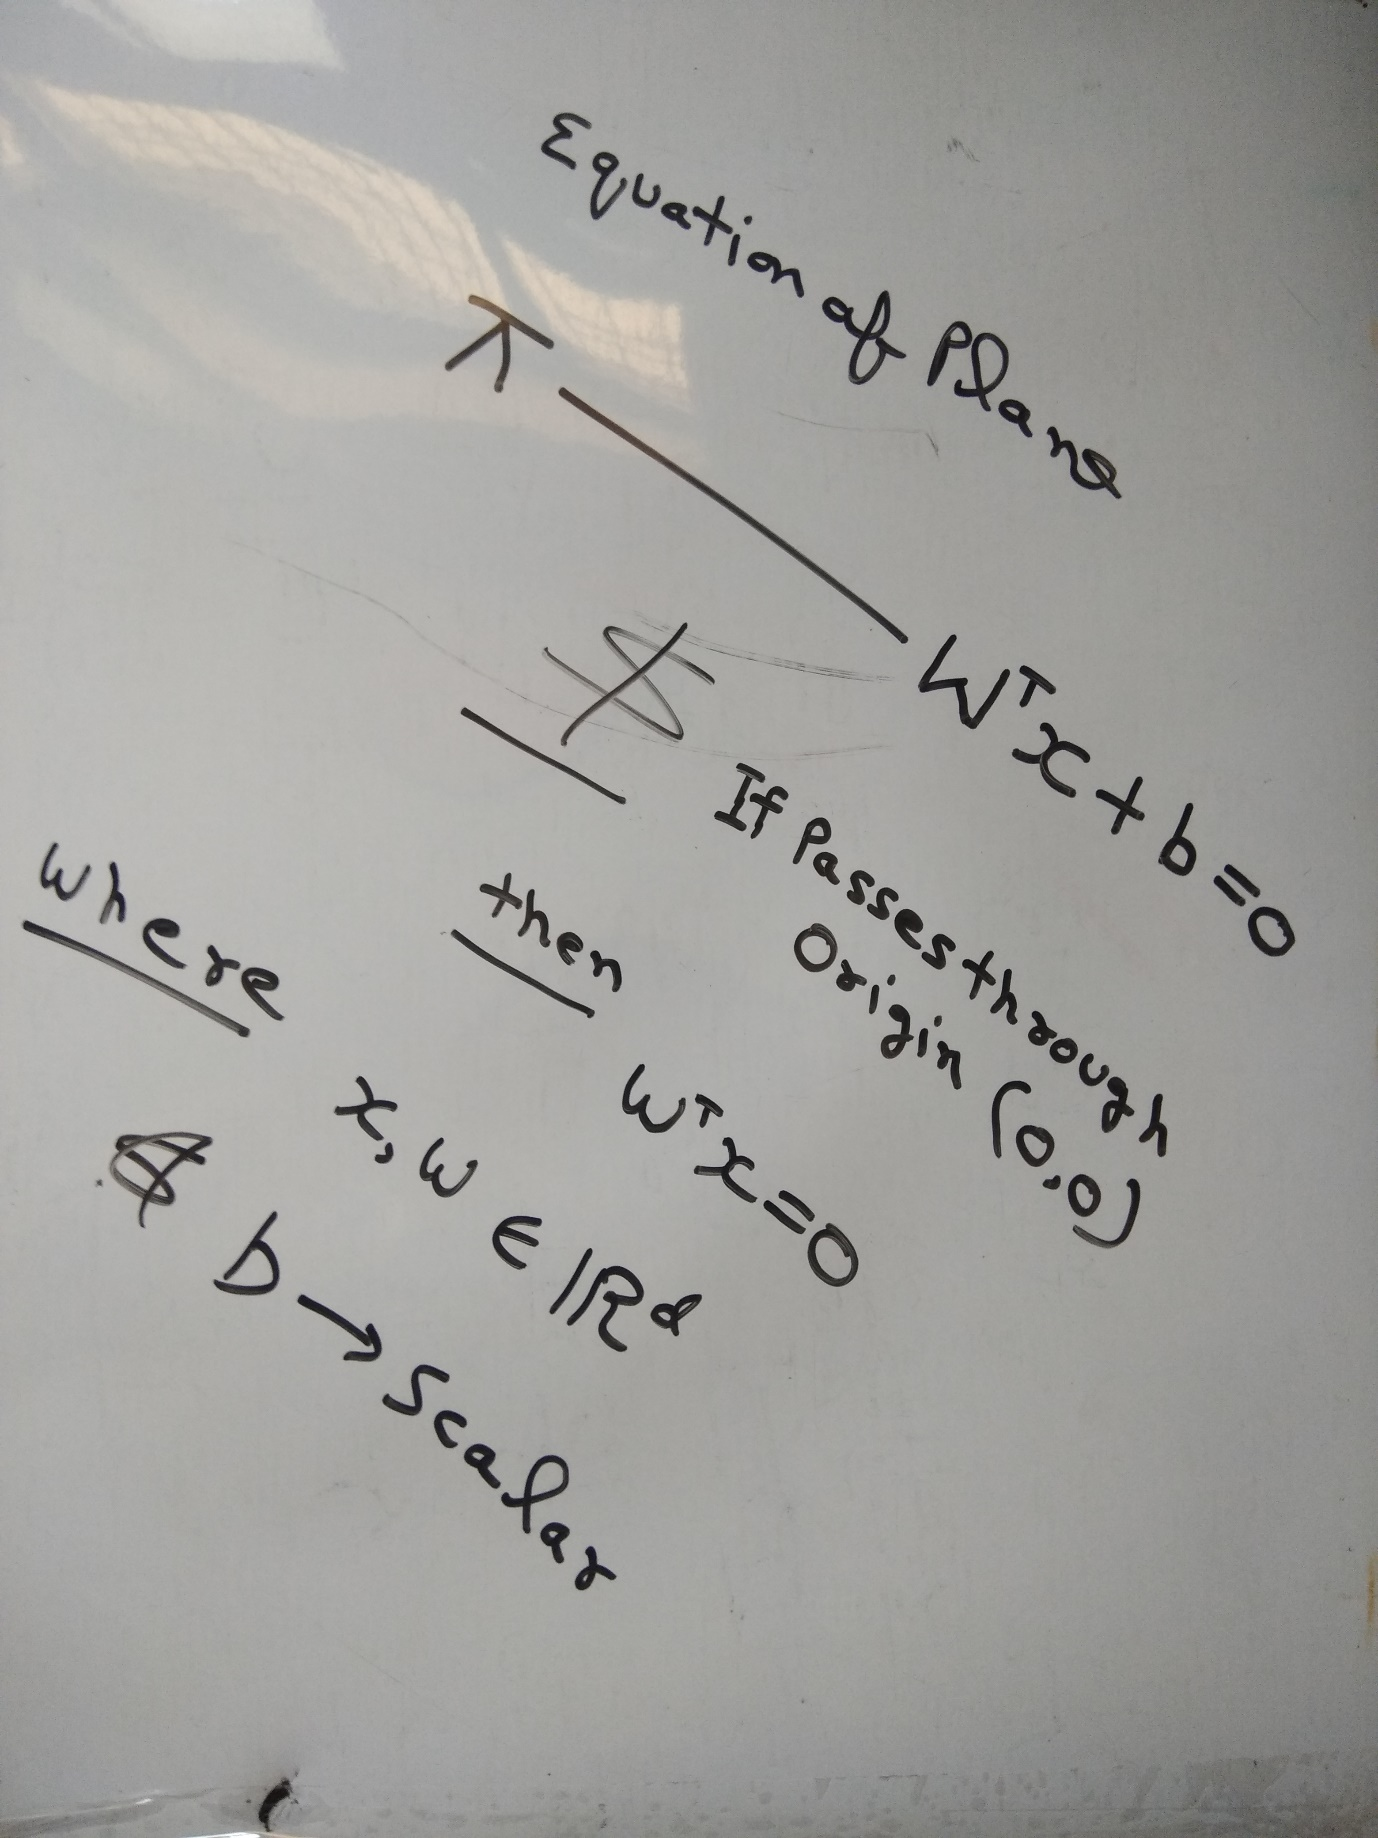 Equation of Plane
π — Wᵀx + b = 0
If Passes through
Origin (0,0)
then
Wᵀx = 0
where
x, w ∈ ℝᵈ
b → Scalar